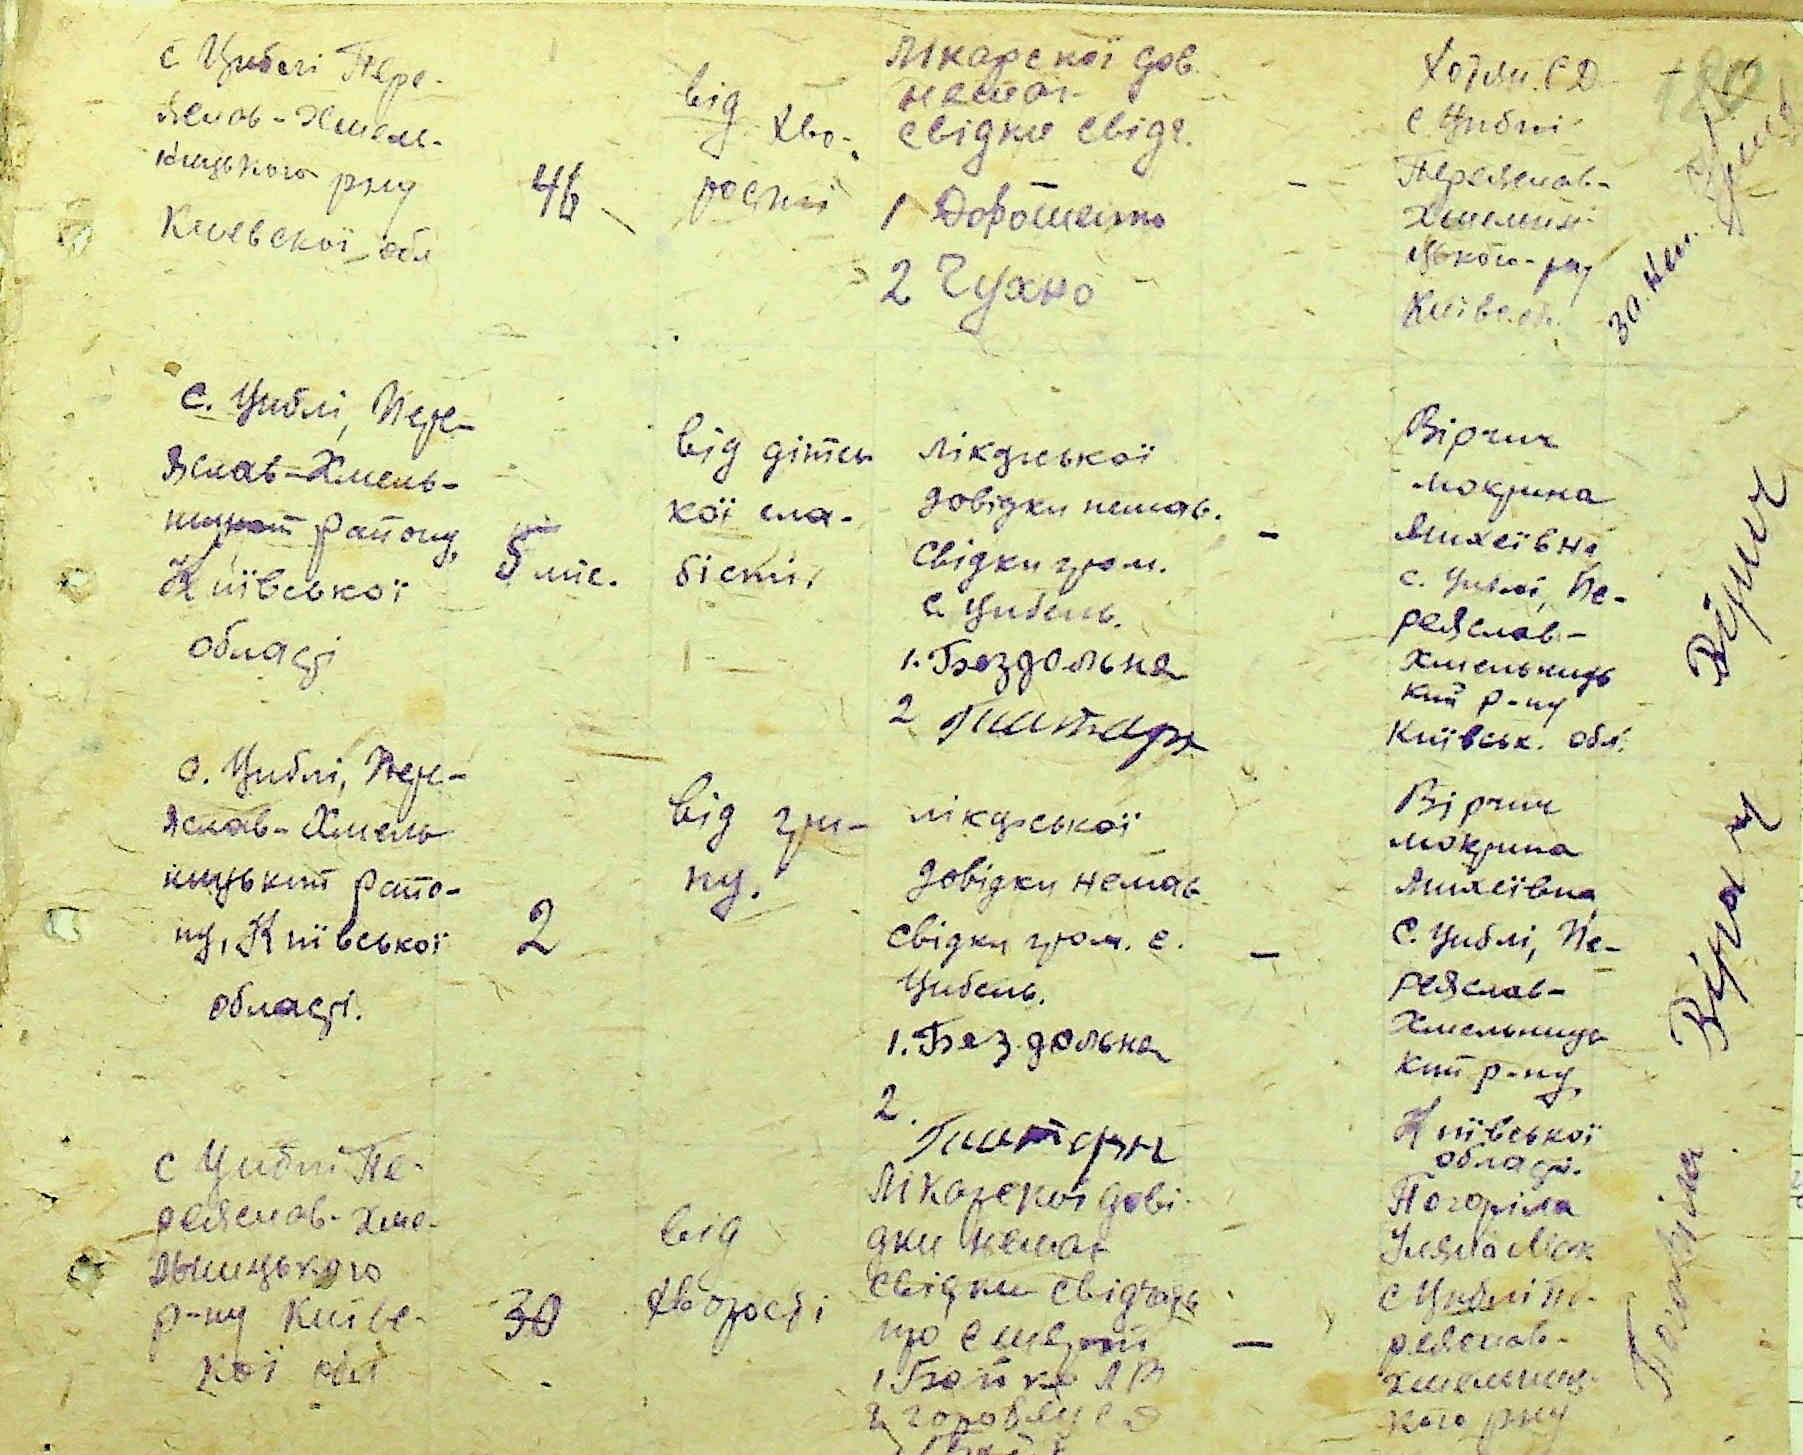 с Циблі Пере-
яслав-Хмель-
ницького рну
Киевскої обл
46
від
хво-
рости
Лікарскої дов.
немає
свідки свідч.
1 Дорошенко
2 Чухно
-
С.Д.
с Циблі
Переяслав-
Хмельни-
цького р-ну
Київс. об.
с. Циблі, Пере-
яслав-Хмель-
району,
Київської
області
5 міс.
від дітсь
кої сла-
бісти,
лікарської
довідки немає.
Свідки гром.
с. Цибель.
1. Бездольна
2
-
Вірчич
мокрина
Михеївна
с. Циблі, Пе-
реяслав-
Хмельниць
кий р-ну
Київськ. обл.
Вірчич
с. Циблі, Пере-
яслав-Хмель
ницький райо-
ну, Київської
області.
2
від гри-
пу.
лікарської
довідки немає
свідки гром. с.
Цибель.
1. Бездольна
2.
-
Вірчич
мокрина
Михеївна
с. Циблі, Пе-
реяслав-
Хмельниць
кий р-ну,
Київської
області.
Вірчич
с Циблі Пе-
реяслав-Хме-
льницького
р-ну Київс-
кої обл
30
від
хворости
Лікарскої дові-
дки немає
свідки свідчать
про смерть
1. Бойко
2
-
Погоріла
Уляна
с Циблі Пе-
реяслав-
хмельниц-
кого рну
Погоріла